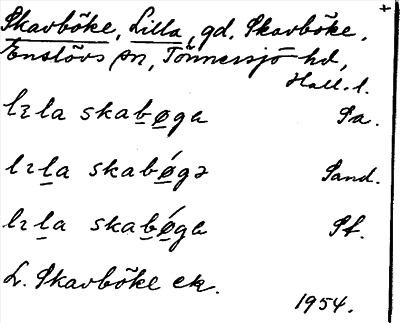 +
Skavböke, Lilla, gd, Skavböke,
Enslövs sn, Tönnersjö hd,
Hall. l.
lɪla skabøga Sa.
lɪla skabǿgə Sand.
lɪla skabǿga Sf.
L. Skavböke ek.
1954.